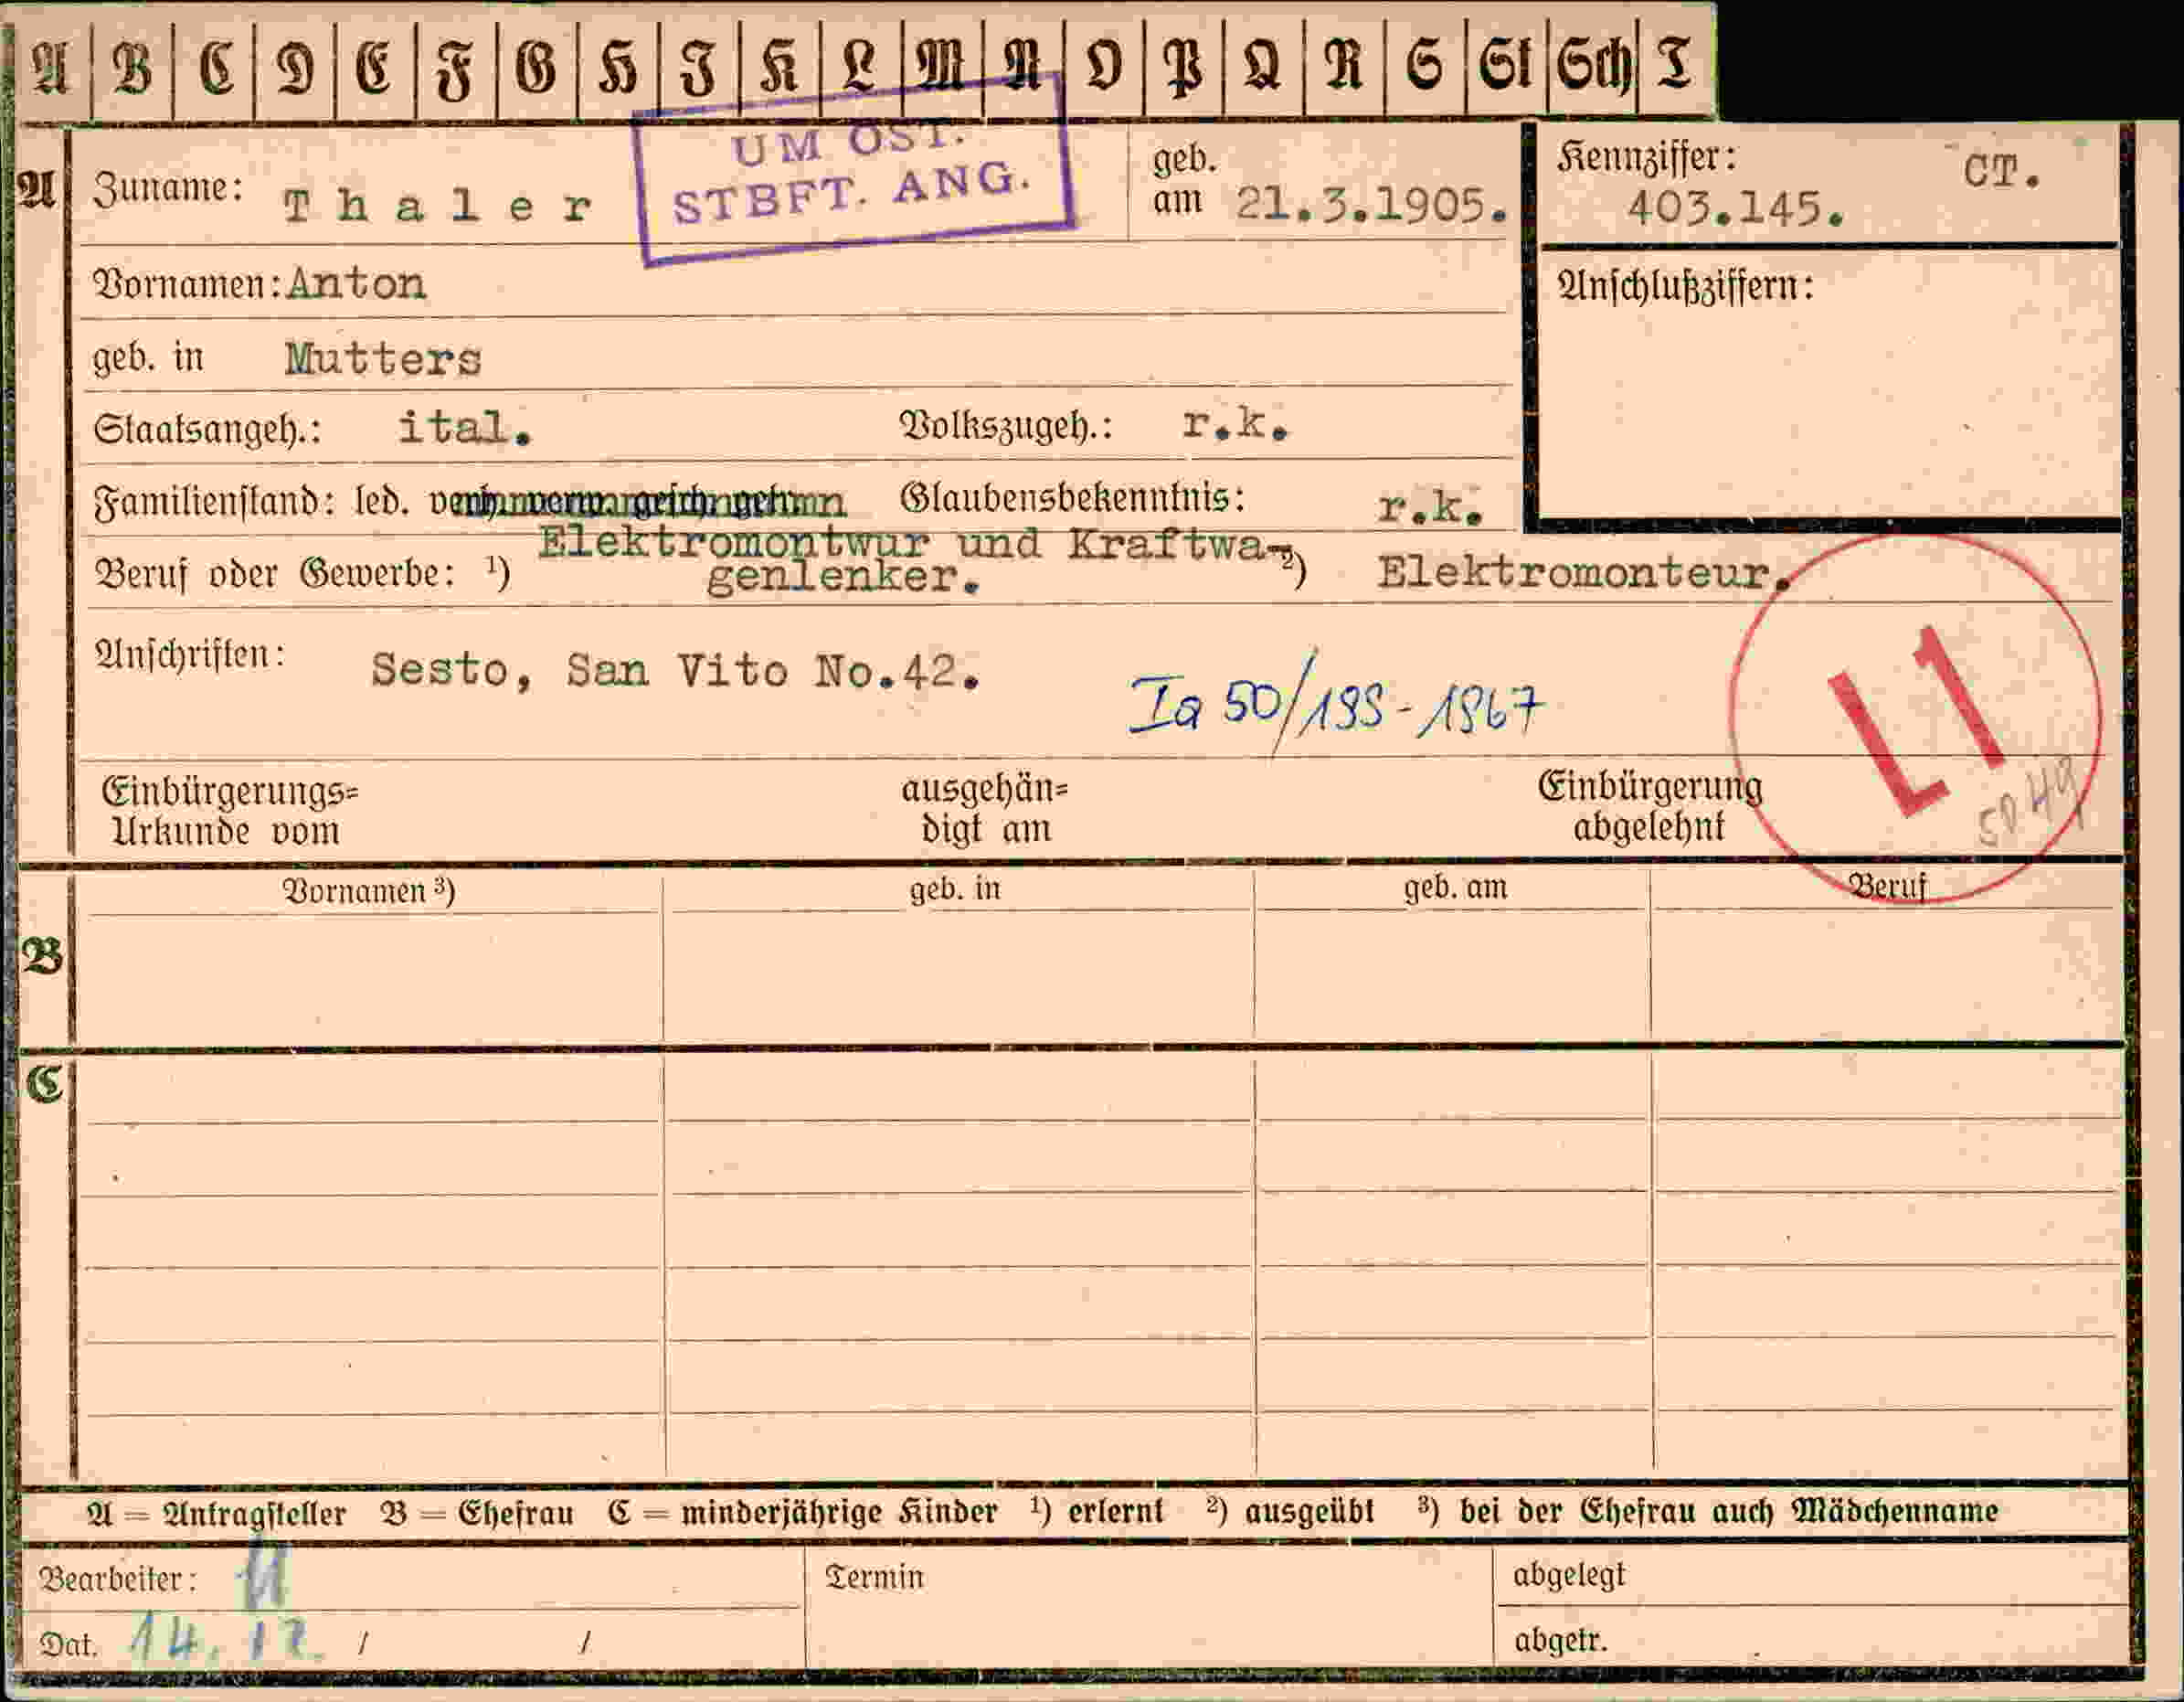 A B C D E F G H I K L M N O P Q R S St Sch T
UM ÖST.
STBFT. ANG.
A Zuname: Thaler geb. am 21.3.1905. Kennziffer: CT.
403.145.
Vornamen: Anton Anschlußziffern:
geb. in Mutters
Staatsangeh.: ital. Volkszugeh.: r.k.
Familienstand: led. Glaubensbekenntnis: r.k.
Beruf oder Gewerbe: ¹) Elektromontwur und Kraftwa-
genlenker. ²) Elektromonteur.
Anschriften: Sesto, San Vito No.42.
Ia 50/199-1967
L1
Einbürgerungs= ausgehän= Einbürgerung
Urkunde vom digt am abgelehnt
Vornamen ³) geb. in geb. am Beruf
B
C
A = Antragsteller B = Ehefrau C = minderjährige Kinder ¹) erlernt ²) ausgeübt ³) bei der Ehefrau auch Mädchenname
Bearbeiter: Termin abgelegt
Dat. 14.12. / / abgetr.